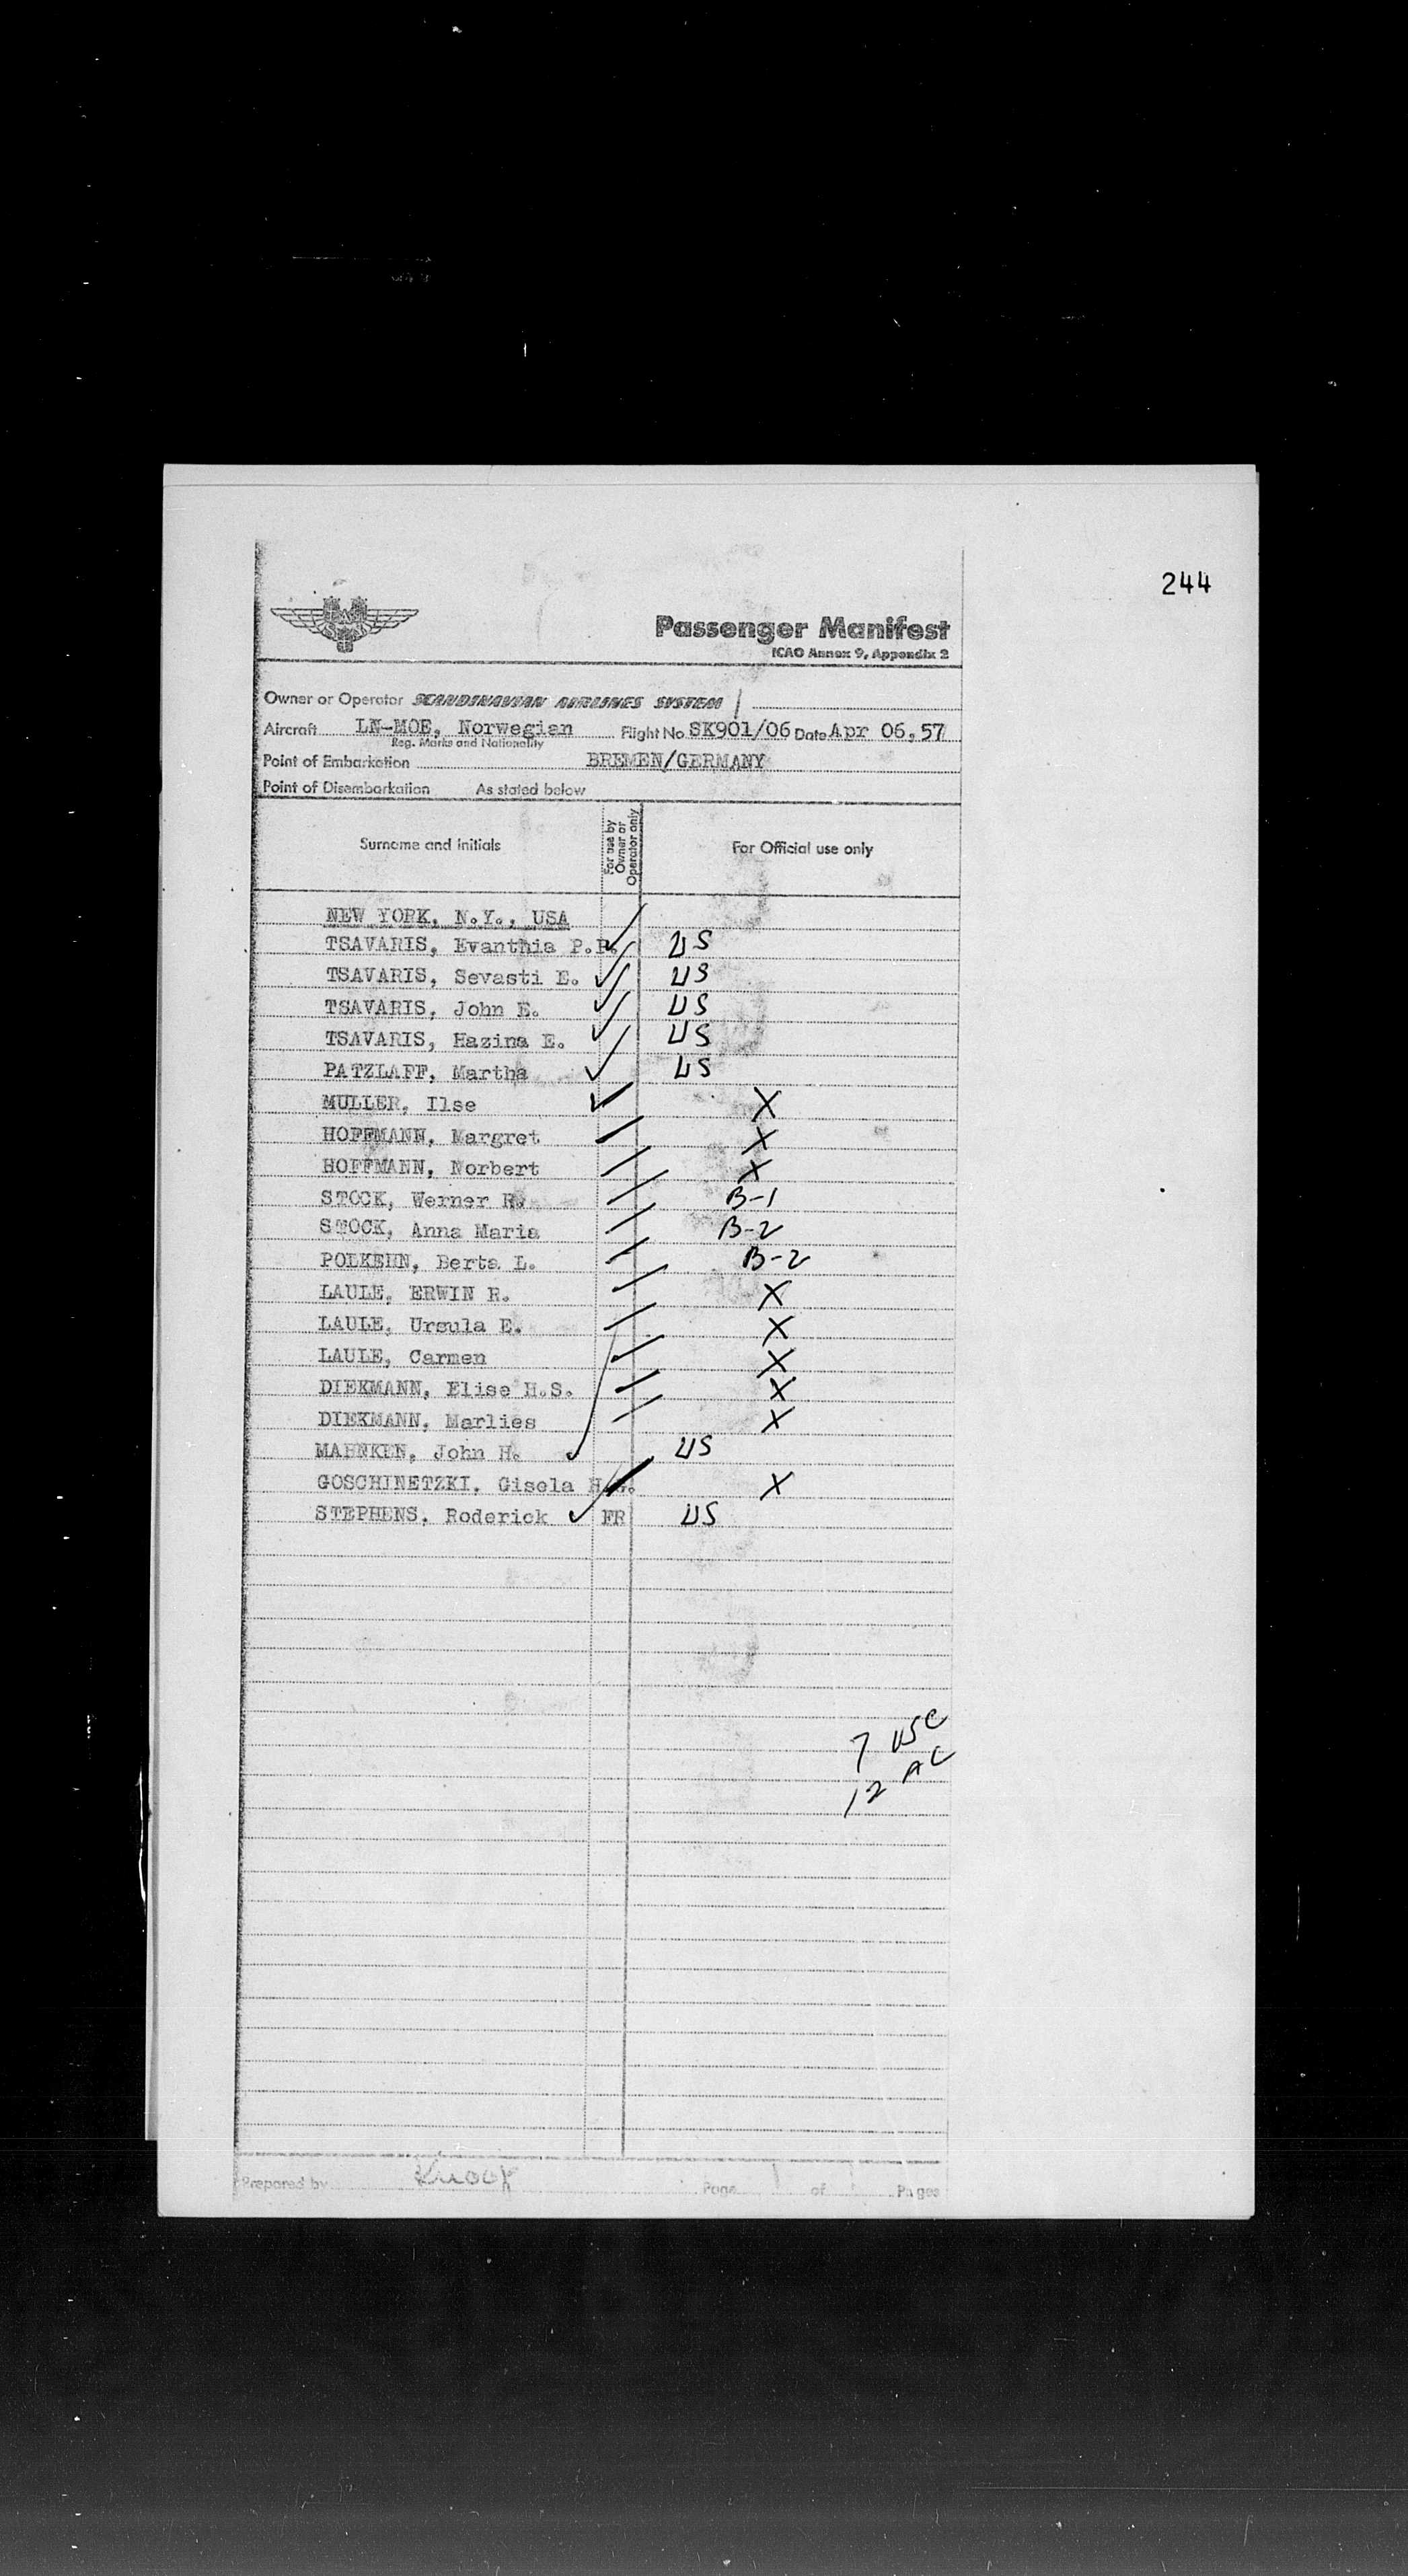 244
SAS
Passenger Manifest
ICAO Annex 9, Appendix 2
Owner or Operator SCANDINAVIAN AIRLINES SYSTEM
Aircraft LN-MOE, Norwegian Flight No SK901/06 Date Apr 06,57
Reg. Marks and Nationality
Point of Embarkation BREMEN/GERMANY
Point of Disembarkation As stated below
Surname and initials For use by Owner or Operator only For Official use only
NEW YORK, N.Y., USA
TSAVARIS, Evanthia P.P. US
TSAVARIS, Sevasti E. US
TSAVARIS, John E. US
TSAVARIS, Hazina E. US
PATZLAFF, Martha US
MULLER, Ilse X
HOFFMANN, Margret X
HOFFMANN, Norbert X
STOCK, Werner R. B-1
STOCK, Anna Maria B-2
POLKEHN, Berta L. B-2
LAULE, ERWIN R. X
LAULE, Ursula E. X
LAULE, Carmen X
DIEKMANN, Elise H.S. X
DIEKMANN, Marlies X
MAHNKEN, John H. US
GOSCHINETZKI, Gisela X
STEPHENS, Roderick FR US
7 USC
12 AC
Prepared by Page of Pages